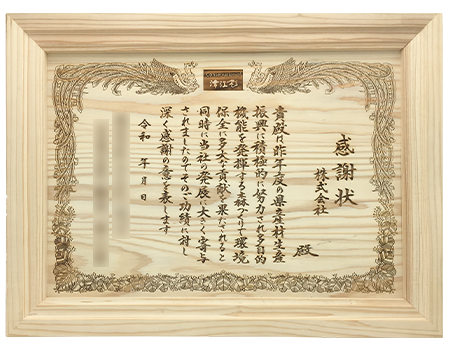 感謝状
株式会社
殿
貴殿は昨年度の県産材生産
振興に積極的に努力され多目的
機能を発揮する森づくりで環境
保全に多大な貢献を果たされると
同時に当社の発展に大きく寄与
されましたのでその功績に対し
深く感謝の意を表します
令和 年 月 日